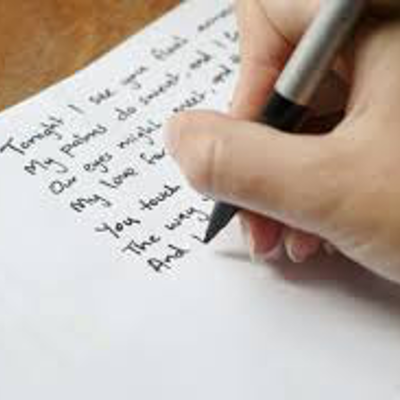 Tonight I see your friend
My palms do sweat, and I
Our eyes might meet, and
My love for
You touch
The way
And